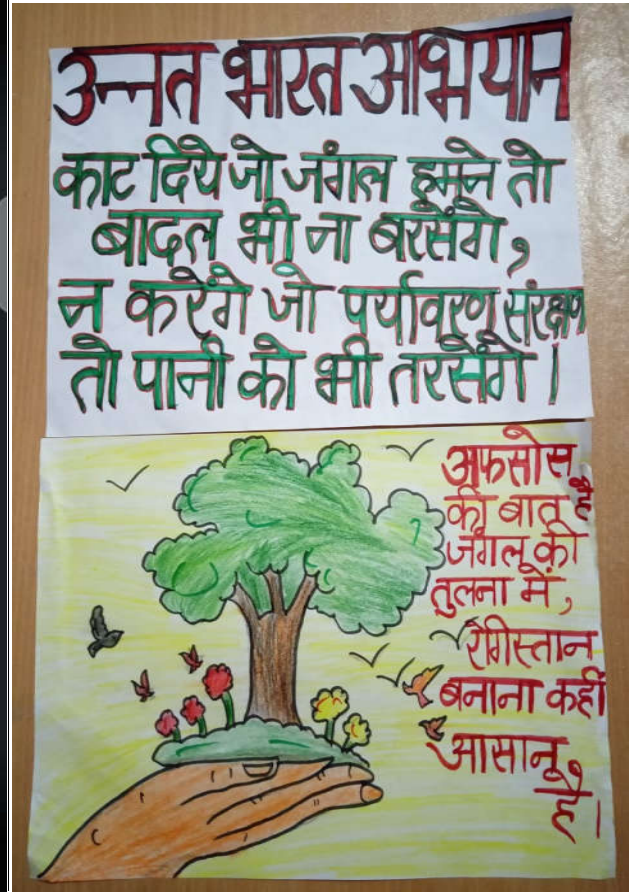 उन्नत भारत अभियान
काट दिये जो जंगल हमने तो
बादल भी ना बरसेंगे,
न करेंगे जो पर्यावरण संरक्षण
तो पानी को भी तरसेंगे।
अफसोस
की बात है
जंगल की
तुलना में,
रेगिस्तान
बनाना कहीं
आसान
है।